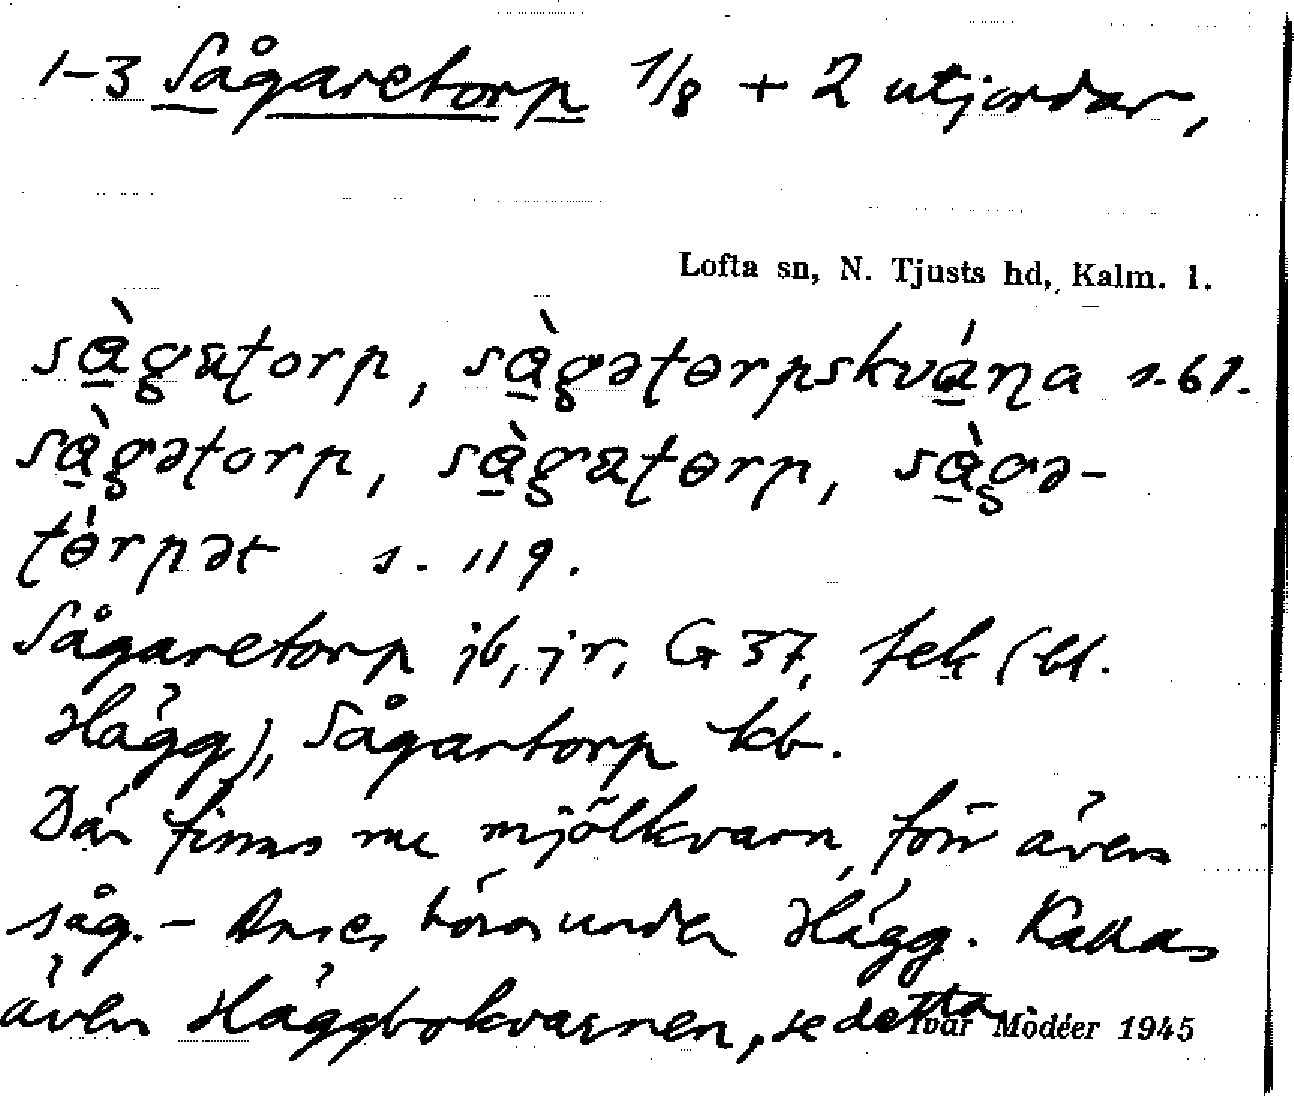 1-3 Sågaretorp 1/8 + 2 utjordar,
Lofta sn, N. Tjusts hd, Kalm. l.
sàgatorp, sàgətɵrpskvána s. 67.
sàgətorp, sàgatɵrp, sàgə-
tɵ́rpət s. 119.
Sågaretorp jb, jr, G 37, fek (bl.
Hägg), Sågartorp kb.
Där finns nu mjölkvarn, förr även
såg. - Anses höra under Hägg. Kallas
även Häggbokvarnen, se detta
Ivar Modéer 1945